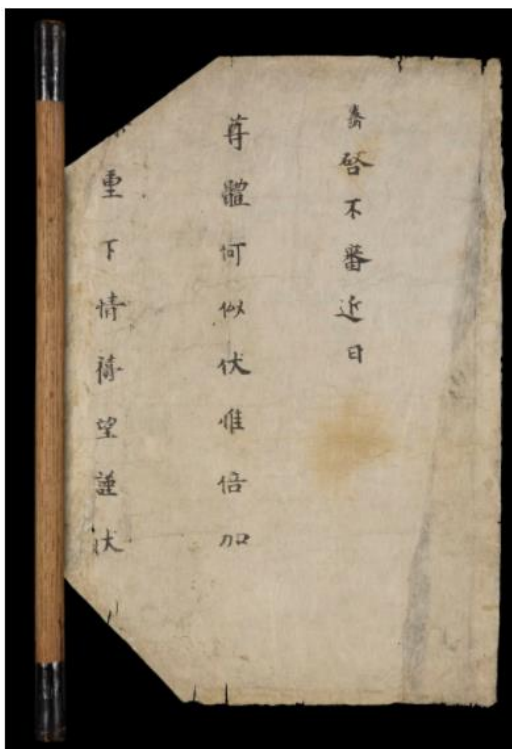 啓不審近日
尊體何似伏惟倍加
重下情禱望謹狀